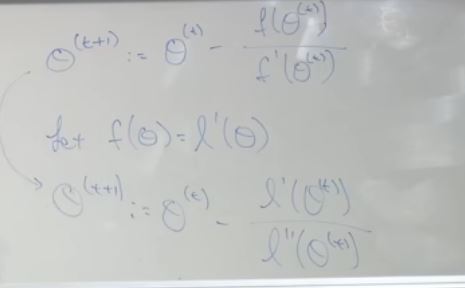 θ^(t+1) := θ^(t) - f(θ^(t)) / f'(θ^(t))
Let f(θ) = l'(θ)
θ^(t+1) := θ^(t) - l'(θ^(t)) / l''(θ^(t))